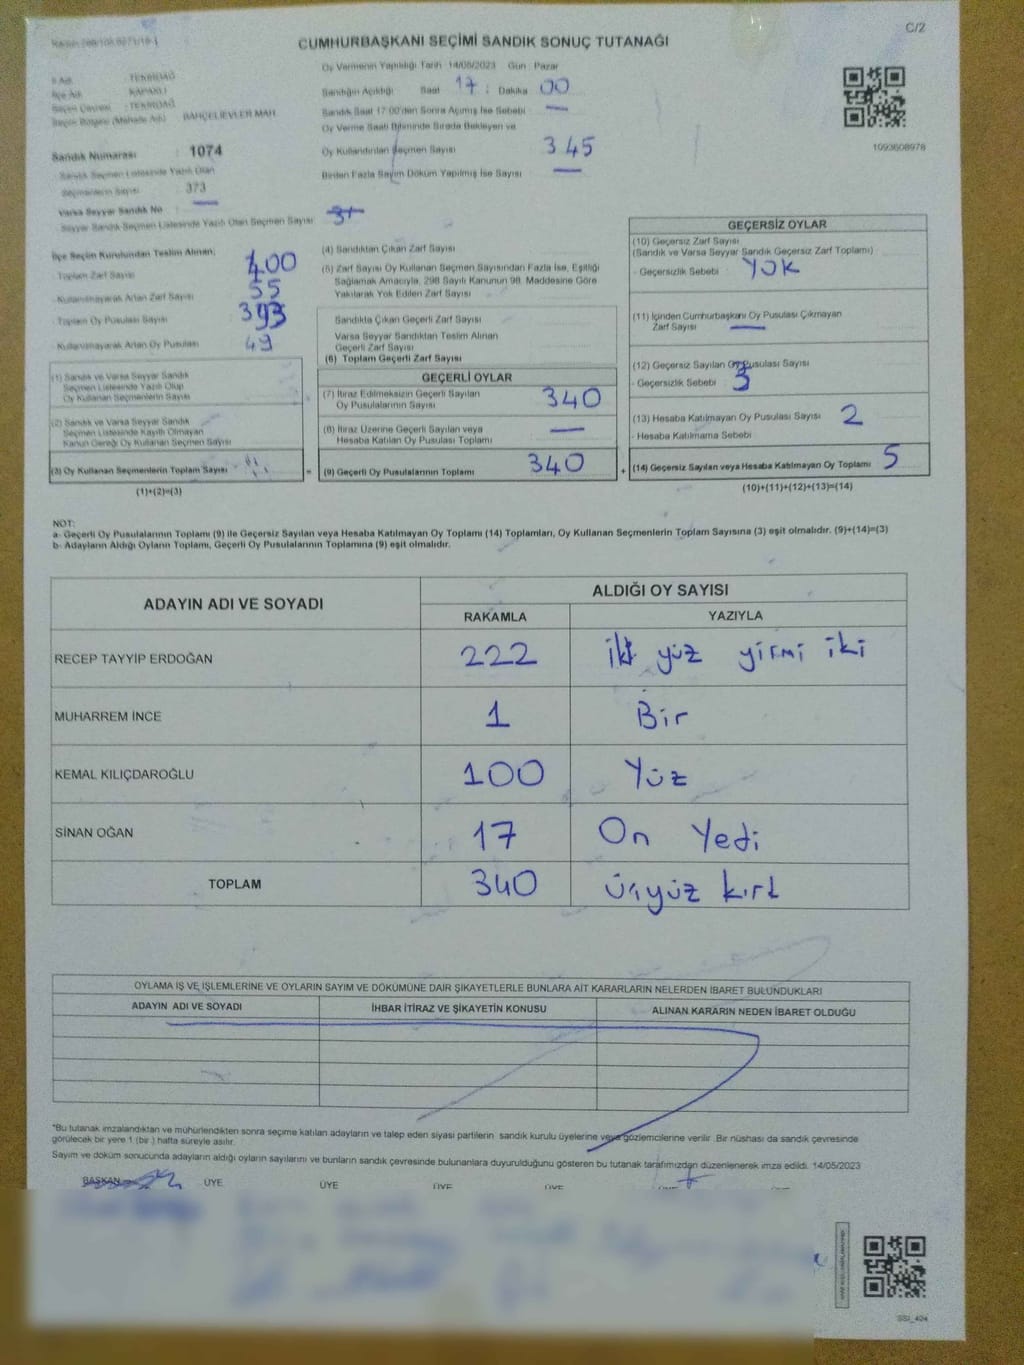 C/2
CUMHURBAŞKANI SEÇİMİ SANDIK SONUÇ TUTANAĞI
Oy Vermenin Yapıldığı Tarih 14/05/2023 Gün : Pazar
İl Adı : TEKİRDAĞ
İlçe Adı : KAPAKLI
Seçim Çevresi : TEKİRDAĞ
Seçim Bölgesi (Mahalle Adı) BAHÇELİEVLER MAH.
Sandık Numarası : 1074
Sandık Seçmen Listesinde Yazılı Olan
Seçmenlerin Sayısı 373
Varsa Seyyar Sandık No —
Seyyar Sandık Seçmen Listesinde Yazılı Olan Seçmen Sayısı
Sandığın Açıldığı Saat 17 : Dakika 00
Sandık Saat 17:00'den Sonra Açılmış İse Sebebi —
Oy Verme Saati Bitiminde Sırada Bekleyen ve
Oy Kullandırılan Seçmen Sayısı 345
Birden Fazla Sayım Döküm Yapılmış İse Sayısı —
1093608978
İlçe Seçim Kurulundan Teslim Alınan;
Toplam Zarf Sayısı 400
Kullanılmayarak Artan Zarf Sayısı 55
Toplam Oy Pusulası Sayısı 393
Kullanılmayarak Artan Oy Pusulası 49
(1) Sandık ve Varsa Seyyar Sandık
Seçmen Listesinde Yazılı Olup
Oy Kullanan Seçmenlerin Sayısı
(2) Sandık ve Varsa Seyyar Sandık
Seçmen Listesinde Kayıtlı Olmayan
Kanun Gereği Oy Kullanan Seçmen Sayısı
(3) Oy Kullanan Seçmenlerin Toplam Sayısı
(1)+(2)=(3)
(4) Sandıktan Çıkan Zarf Sayısı
(5) Zarf Sayısı Oy Kullanan Seçmen Sayısından Fazla İse, Eşitliği
Sağlamak Amacıyla, 298 Sayılı Kanunun 98. Maddesine Göre
Yakılarak Yok Edilen Zarf Sayısı
Sandıkta Çıkan Geçerli Zarf Sayısı
Varsa Seyyar Sandıktan Teslim Alınan
Geçerli Zarf Sayısı
(6) Toplam Geçerli Zarf Sayısı
GEÇERLİ OYLAR
(7) İtiraz Edilmeksizin Geçerli Sayılan
Oy Pusulalarının Sayısı 340
(8) İtiraz Üzerine Geçerli Sayılan veya
Hesaba Katılan Oy Pusulası Toplamı —
= (9) Geçerli Oy Pusulalarının Toplamı 340
GEÇERSİZ OYLAR
(10) Geçersiz Zarf Sayısı
(Sandık ve Varsa Seyyar Sandık Geçersiz Zarf Toplamı)
- Geçersizlik Sebebi YOK
(11) İçinden Cumhurbaşkanı Oy Pusulası Çıkmayan
Zarf Sayısı —
(12) Geçersiz Sayılan Oy Pusulası Sayısı 3
- Geçersizlik Sebebi
(13) Hesaba Katılmayan Oy Pusulası Sayısı 2
- Hesaba Katılmama Sebebi
+ (14) Geçersiz Sayılan veya Hesaba Katılmayan Oy Toplamı 5
(10)+(11)+(12)+(13)=(14)
NOT:
a- Geçerli Oy Pusulalarının Toplamı (9) ile Geçersiz Sayılan veya Hesaba Katılmayan Oy Toplamı (14) Toplamları, Oy Kullanan Seçmenlerin Toplam Sayısına (3) eşit olmalıdır. (9)+(14)=(3)
b- Adayların Aldığı Oyların Toplamı, Geçerli Oy Pusulalarının Toplamına (9) eşit olmalıdır.
ADAYIN ADI VE SOYADI
ALDIĞI OY SAYISI
RAKAMLA YAZIYLA
RECEP TAYYİP ERDOĞAN 222 iki yüz yirmi iki
MUHARREM İNCE 1 Bir
KEMAL KILIÇDAROĞLU 100 Yüz
SİNAN OĞAN 17 On Yedi
TOPLAM 340 üçyüz kırk
OYLAMA İŞ VE İŞLEMLERİNE VE OYLARIN SAYIM VE DÖKÜMÜNE DAİR ŞİKAYETLERLE BUNLARA AİT KARARLARIN NELERDEN İBARET BULUNDUKLARI
ADAYIN ADI VE SOYADI İHBAR İTİRAZ VE ŞİKAYETİN KONUSU ALINAN KARARIN NEDEN İBARET OLDUĞU
*Bu tutanak imzalandıktan ve mühürlendikten sonra seçime katılan adayların ve talep eden siyasi partilerin sandık kurulu üyelerine veya gözlemcilerine verilir. Bir nüshası da sandık çevresinde
görülecek bir yere 1 (bir ) hafta süreyle asılır.
Sayım ve döküm sonucunda adayların aldığı oyların sayılarını ve bunların sandık çevresinde bulunanlara duyurulduğunu gösteren bu tutanak tarafımızdan düzenlenerek imza edildi. 14/05/2023
BAŞKAN ÜYE ÜYE ÜYE ÜYE ÜYE
SSI_404